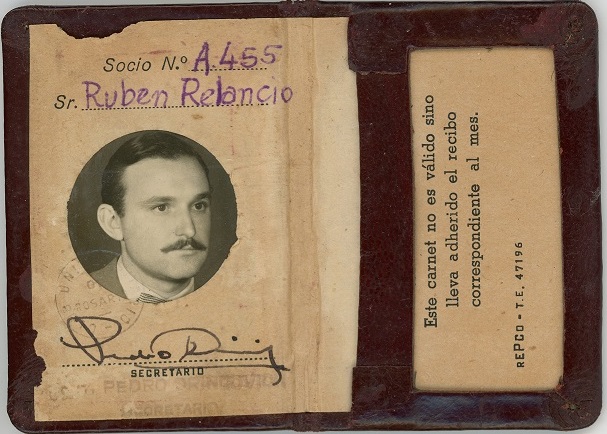 Socio N.º A.455
Sr. Ruben Relancio
ROSARI
SECRETARIO
PEDRO
SECRETARIO
Este carnet no es válido sino
lleva adherido el recibo
correspondiente al mes.
REPCO - T.E. 47196